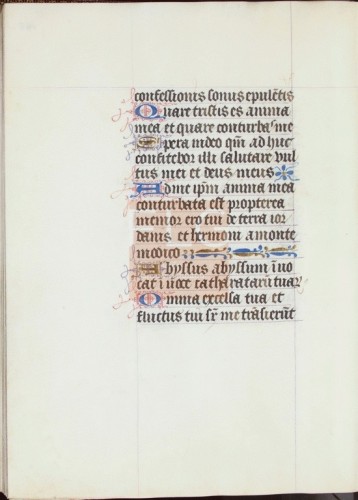 confessionis sonus epulētis
Quare tristis es anima
mea et quare conturbas me
Spera in deo qm̄ ad huc
confitebor illi salutare vul
tus mei et deus meus
Ad me ip̄m anima mea
conturbata est propterea
memor ero tui de terra ior
danis et hermoni a monte
modico
Abyssus abyssum īuo
cat ī uoce catharataꝝ tuaꝝ
Omnia excelsa tua et
fluctus tui sr̄ me trāsierūt